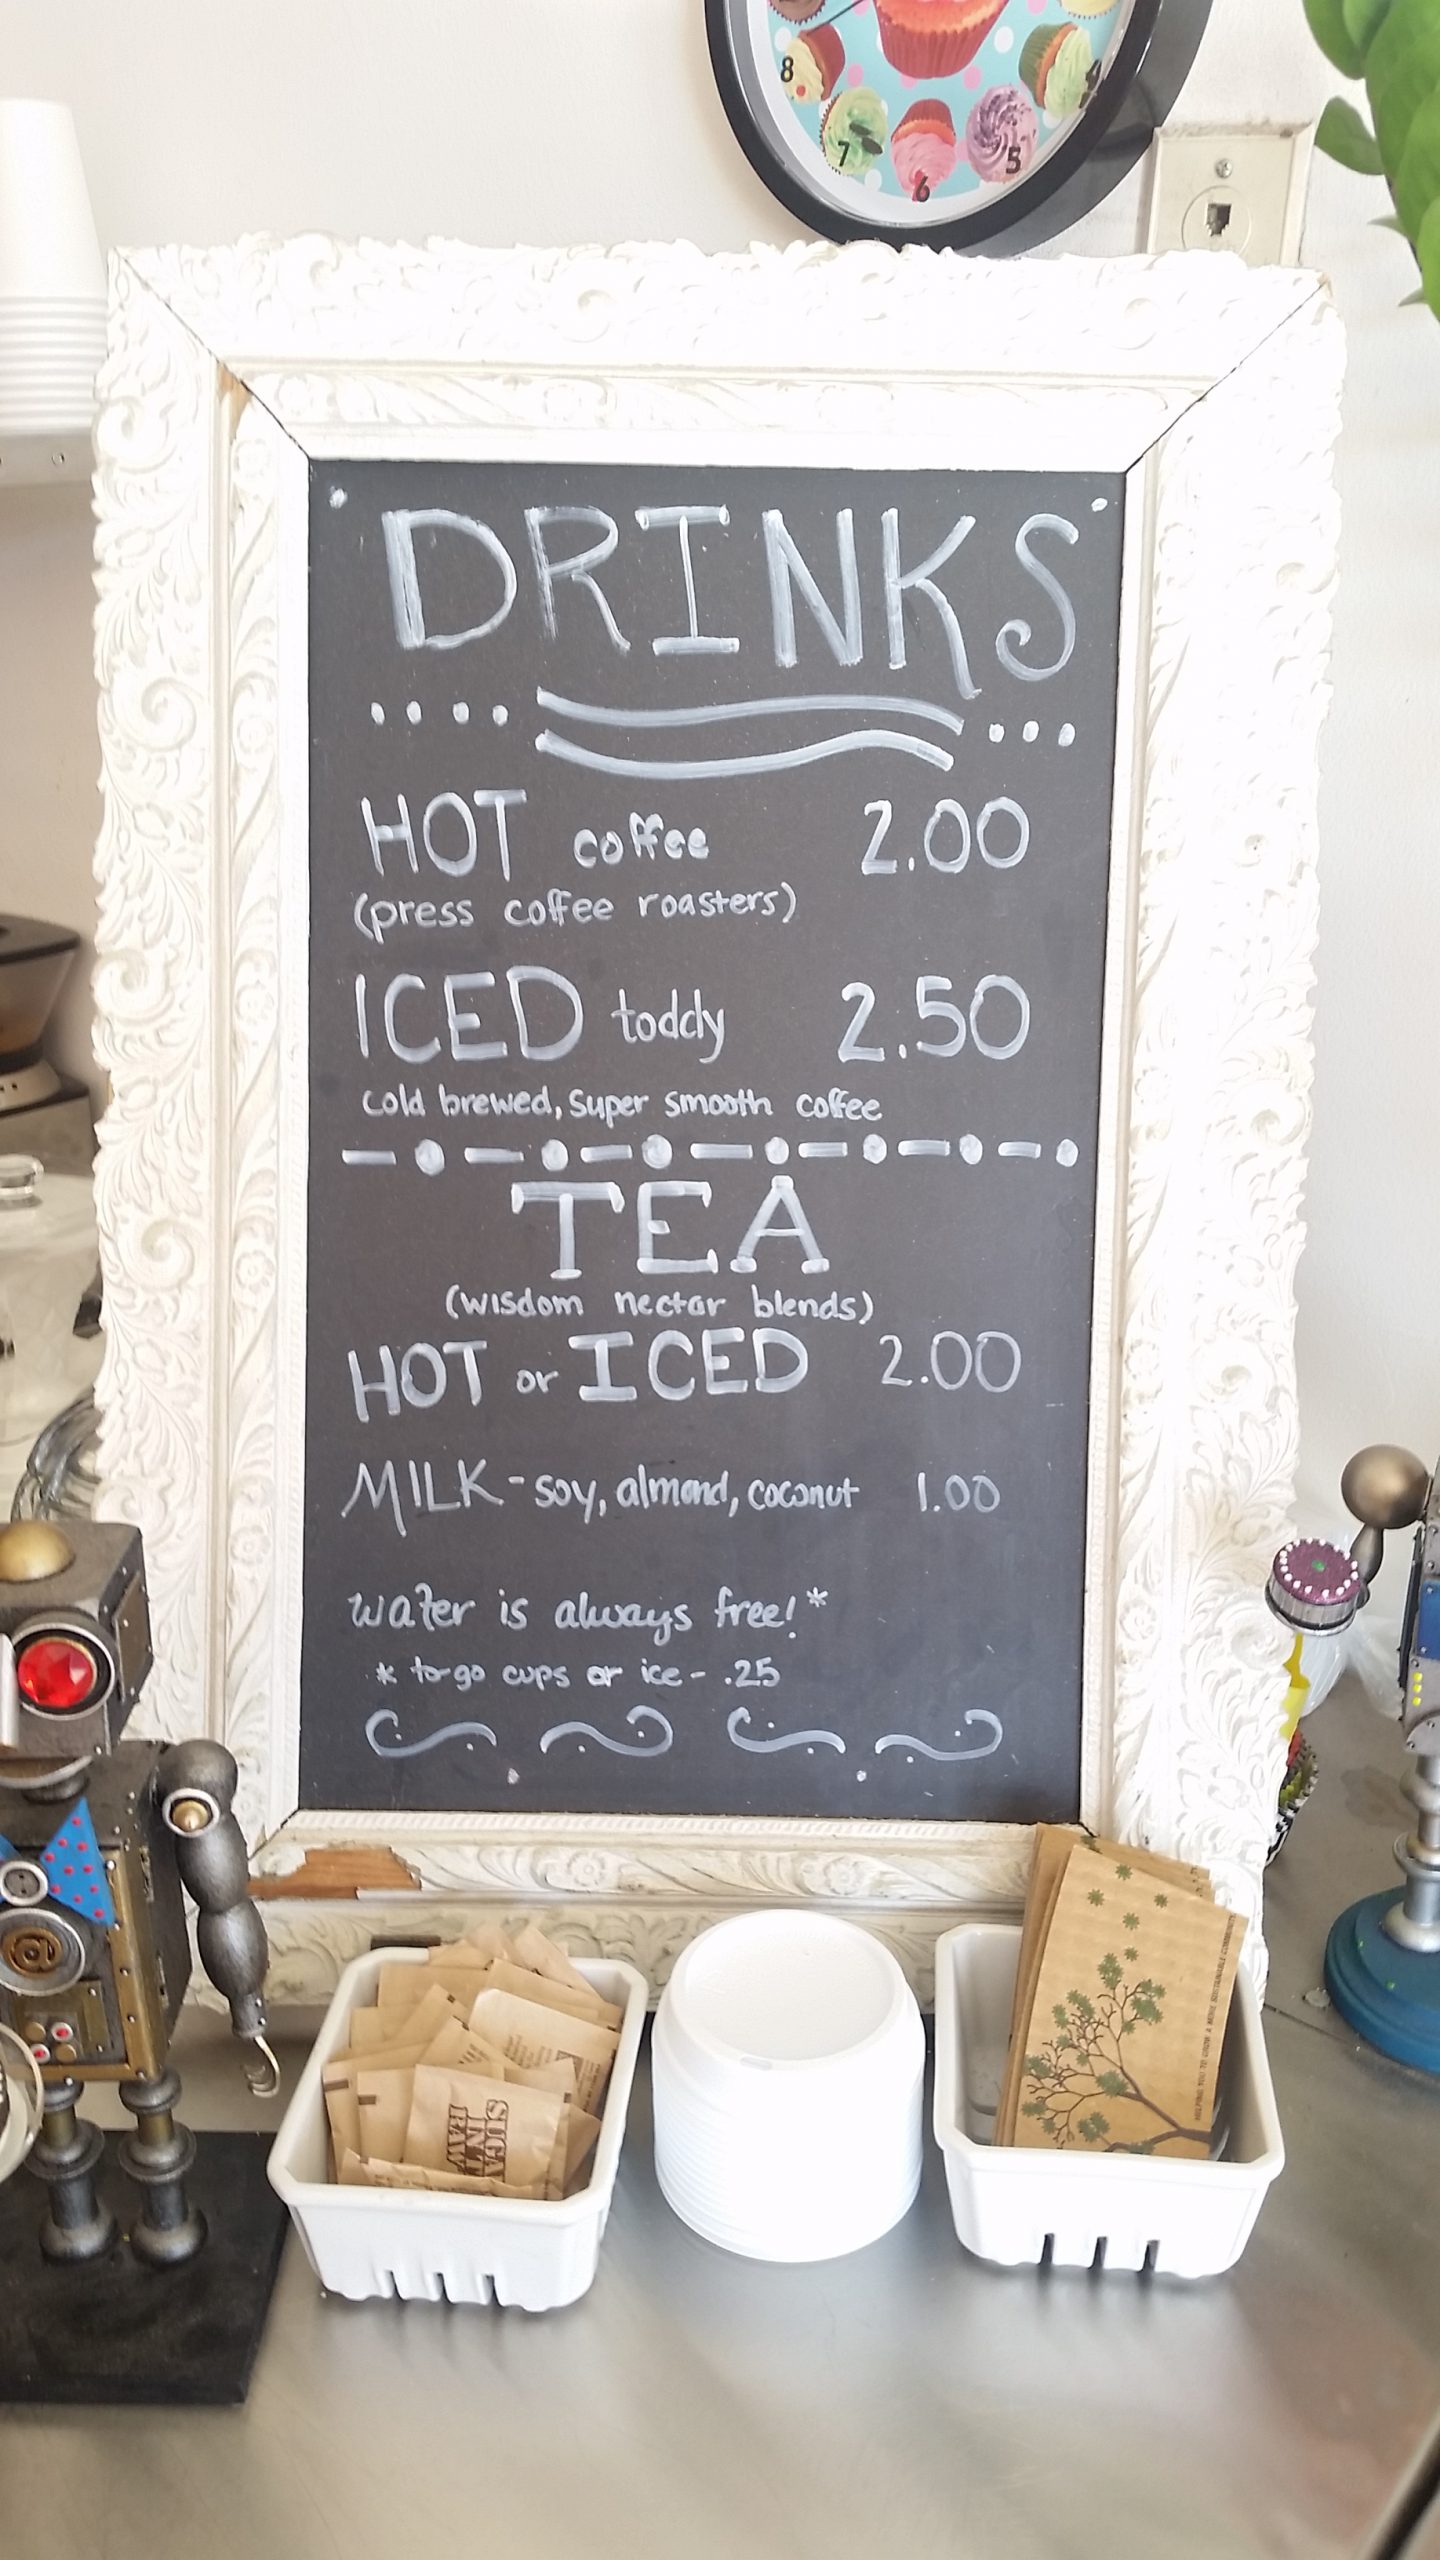 8
4
7
5
6
DRINKS
HOT coffee 2.00
(press coffee roasters)
ICED toddy 2.50
cold brewed, super smooth coffee
TEA
(wisdom nectar blends)
HOT or ICED 2.00
MILK - soy, almond, coconut 1.00
water is always free! *
* to-go cups or ice - .25
@
SUGAR
IN THE
RAW
HELPING YOU TO GROW A MORE SUSTAINABLE COMMUNITY